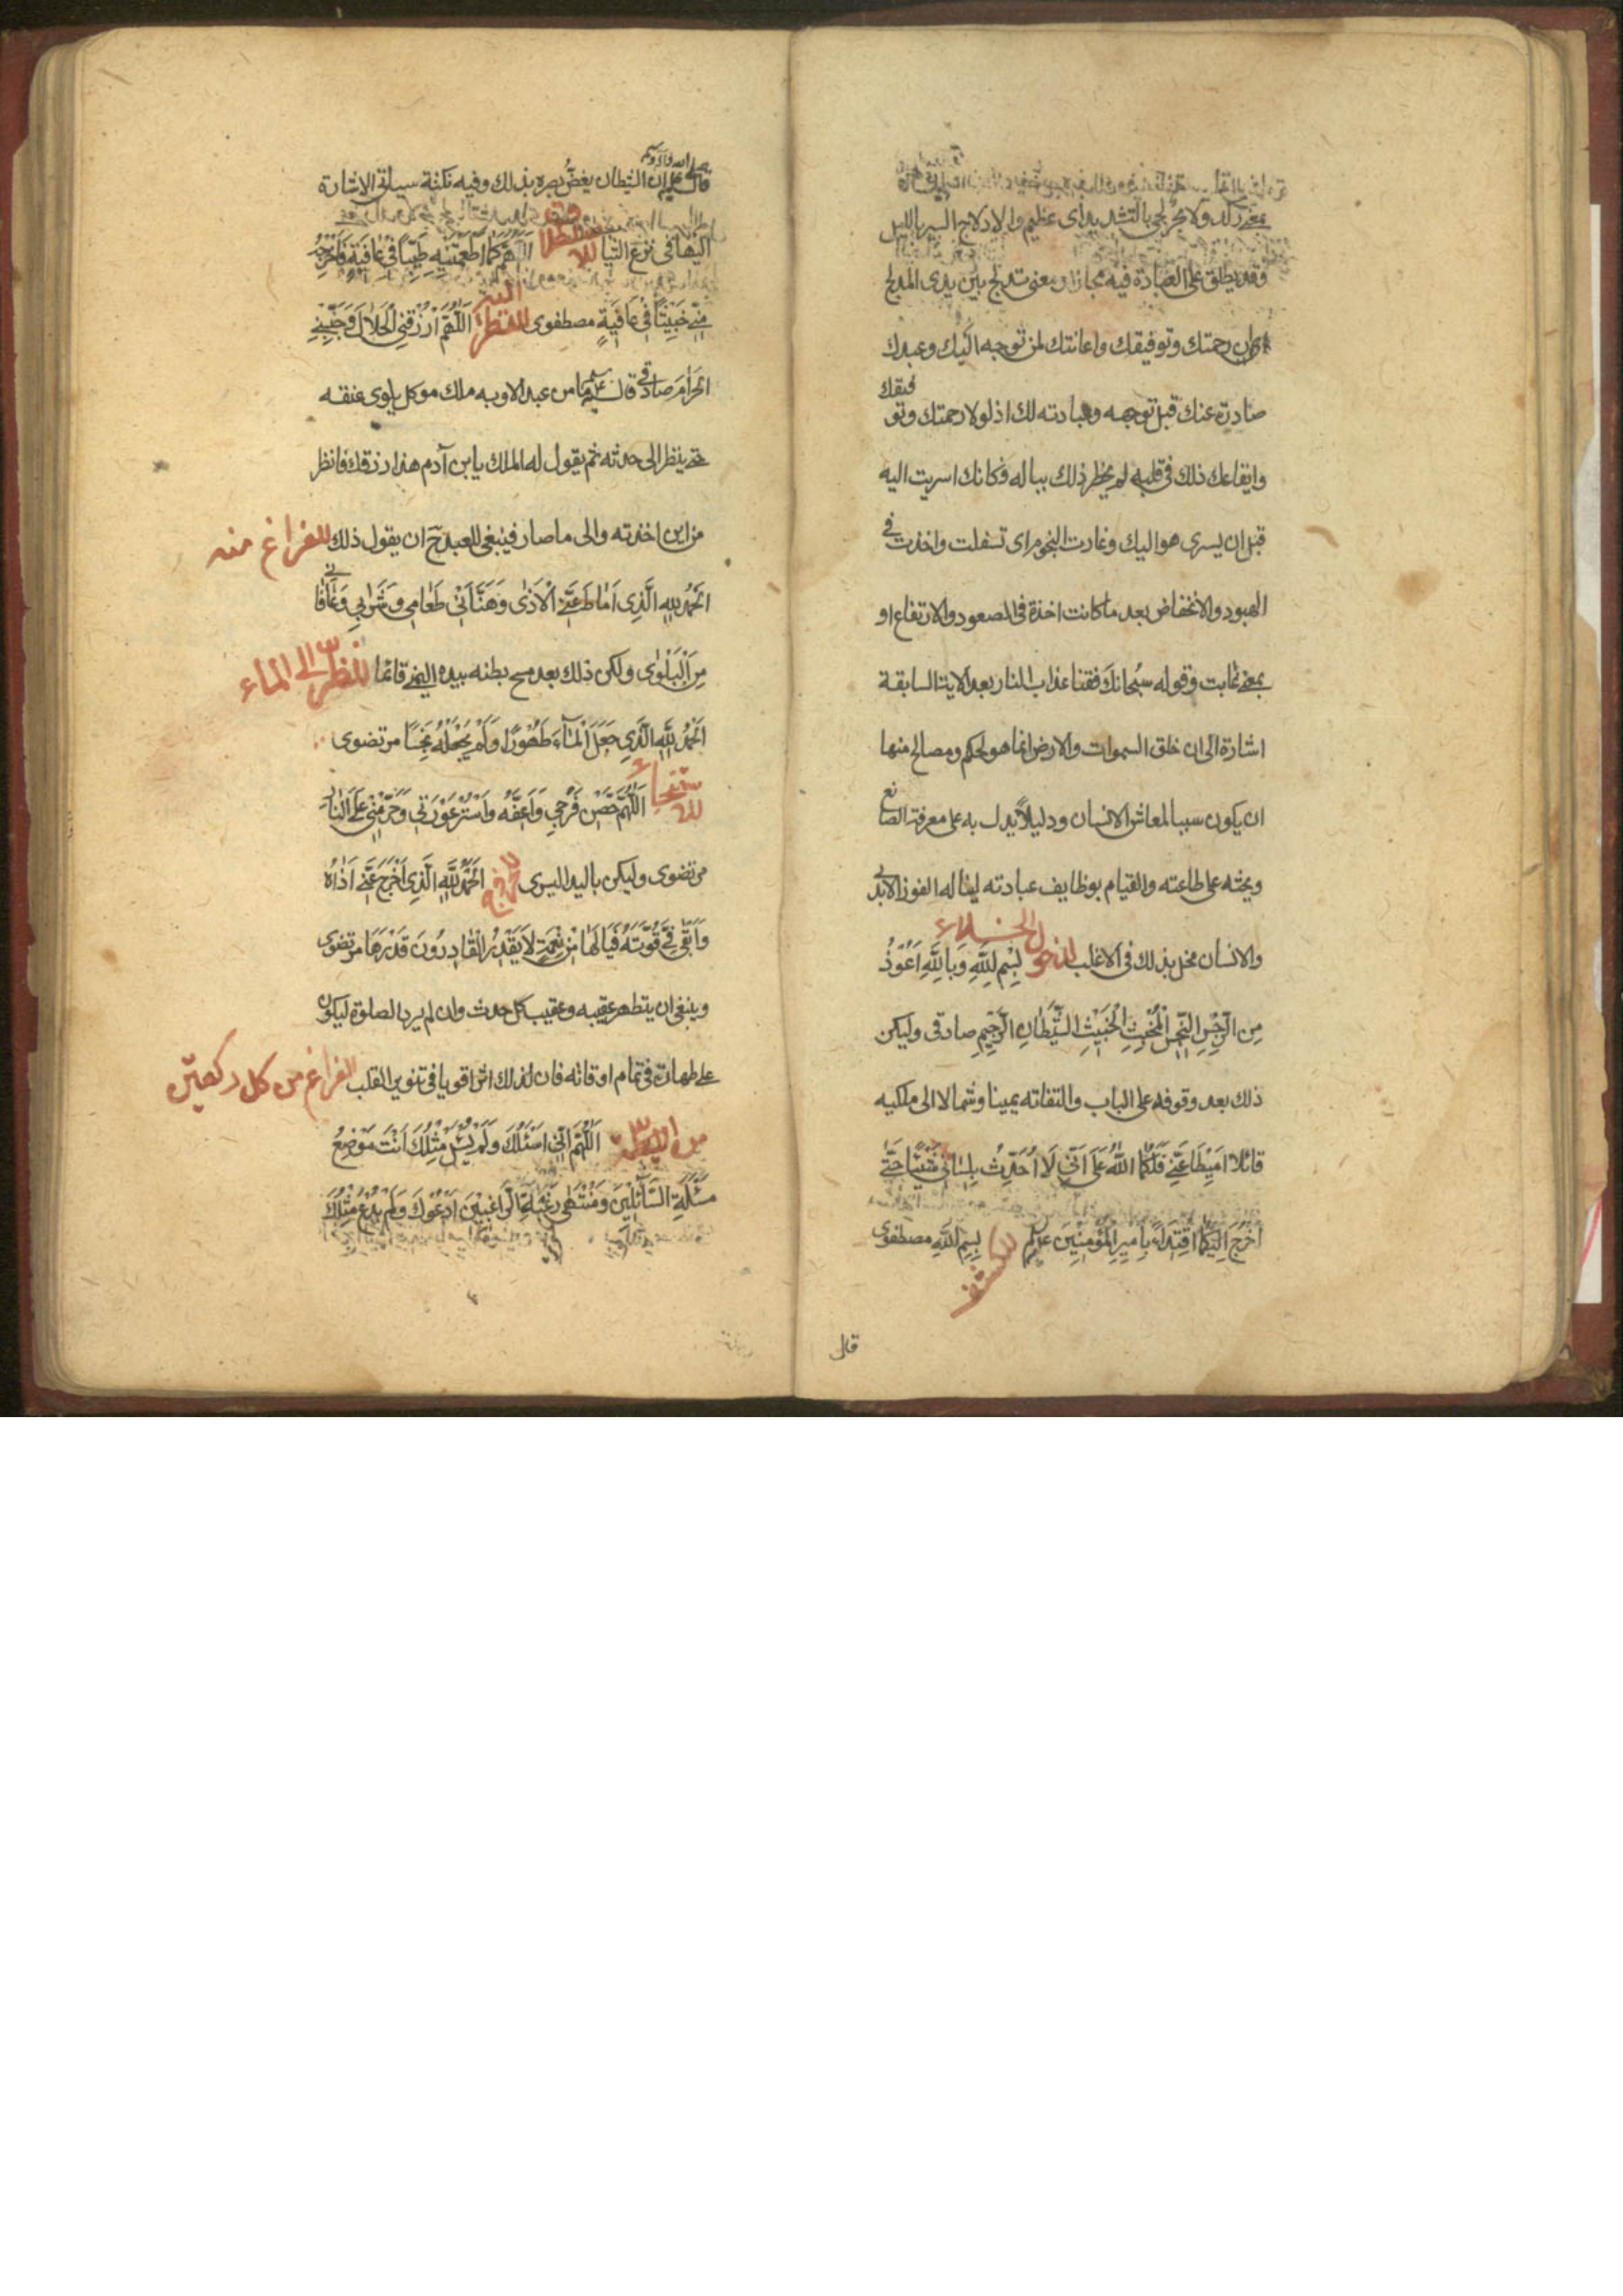 بمعنى ركد ولا بحر لجى بالتشديد اى عظيم والادلاج السير بالليل
وقد يطلق على العبادة فيه مجازا ومعنى تدلج بين يدى المدلج
ان رحمتك وتوفيقك واعانتك لمن توجه اليك وعبدك
صادرة عنك قبل توجهه وعبادته لك اذ لولا رحمتك وتوفيقك
وايقاعك ذلك فى قلبه لم يخطر ذلك بباله فكانك اسريت اليه
قبل ان يسرى هو اليك وغارت النجوم اى تسفلت واخذت فى
الهبوط والانخفاض بعد ما كانت اخذة فى الصعود والارتفاع او
بمعنى غابت وقوله سبحانك فقنا عذاب النار بعد الاية السابقة
اشارة الى ان خلق السموات والارض انما هو لحكم ومصالح منها
ان يكون سببا لمعاش الانسان ودليلا يدل به على معرفة الصانع
ويحثه على طاعته والقيام بوظايف عبادته لينال الفوز الابدى
والانسان مخل بذلك فى الاغلب لدخول الخلاء بِسْمِ اللَّهِ وَبِاللَّهِ اَعُوذُ
مِنَ الرِّجْسِ النَّجِسِ الْمُخْبِثِ الْخَبِيثِ الشَّيْطَانِ الرَّجِيمِ صادقى وليكن
ذلك بعد وقوفه على الباب والتفاته يمينا وشمالا الى ملكيه
قائلا اَمِيطَا عَنِّي فَلَكُمَا اللَّهُ عَلَىَّ اَنِّي لَا اُحَدِّثُ بِلِسَانِي شَيْئًا حَتَّى
اَخْرُجَ اِلَيْكُمَا اقتداء بامير المؤمنين عليه للكشف بِسْمِ اللَّهِ مصطفوى
قال
قال ان الشيطان يغض بصره بذلك وفيه نكتة سياتى الاشارة
اليها فى نزع الثياب اَللَّهُمَّ كَمَا اَطْعَمْتَنِيهِ طَيِّبًا فِي عَافِيَةٍ فَاَخْرِجْهُ
مِنِّي خَبِيثًا فِي عَافِيَةٍ مصطفوى للنظر اليه اَللَّهُمَّ ارْزُقْنِي الْحَلَالَ وَجَنِّبْنِي
الْحَرَامَ صادقى قال ما من عبد الا وبه ملك موكل يلوى عنقه
حتى ينظر الى حدثه ثم يقول له الملك يا بن آدم هذا رزقك فانظر
من اين اخذته والى ما صار فينبغى للعبد ح ان يقول ذلك للفراغ منه
اَلْحَمْدُ لِلَّهِ الَّذِي اَمَاطَ عَنِّي الْاَذَى وَهَنَّأَنِي طَعَامِي وَشَرَابِي وَعَافَانِي
مِنَ الْبَلْوَى ولكن ذلك بعد مسح بطنه بيده اليمنى قائما للنظر الى الماء
اَلْحَمْدُ لِلَّهِ الَّذِي جَعَلَ الْمَاءَ طَهُورًا وَلَمْ يَجْعَلْهُ نَجِسًا مرتضوى
للاستنجاء اَللَّهُمَّ حَصِّنْ فَرْجِي وَاَعِفَّهُ وَاسْتُرْ عَوْرَتِي وَحَرِّمْنِي عَلَى النَّارِ
مرتضوى وليكن باليد اليسرى اَلْحَمْدُ لِلَّهِ الَّذِي اَخْرَجَ عَنِّي اَذَاهُ
وَاَبْقَى فِيَّ قُوَّتَهُ فَيَا لَهَا مِنْ نِعْمَةٍ لَا يَقْدِرُ الْقَادِرُونَ قَدْرَهَا مرتضوى
وينبغى ان يتطهر عقيبه وعقيب كل حدث وان لم يرد الصلوة ليكون
على طهارة فى تمام اوقاته فان لذلك اثرا قويا فى تنوير القلب للفراغ من كل ركعتين
اَللَّهُمَّ اِنِّي اَسْئَلُكَ وَلَمْ يُسْئَلْ مِثْلُكَ اَنْتَ مَوْضِعُ
مَسْئَلَةِ السَّائِلِينَ وَمُنْتَهَى رَغْبَةِ الرَّاغِبِينَ اَدْعُوكَ وَلَمْ يُدْعَ مِثْلُكَ